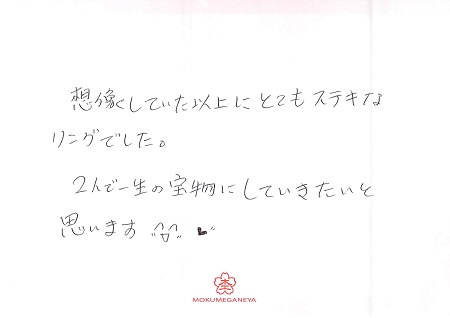 想像していた以上にとてもステキな
リングでした。
2人で一生の宝物にしていきたいと
思います ^^
MOKUMEGANEYA